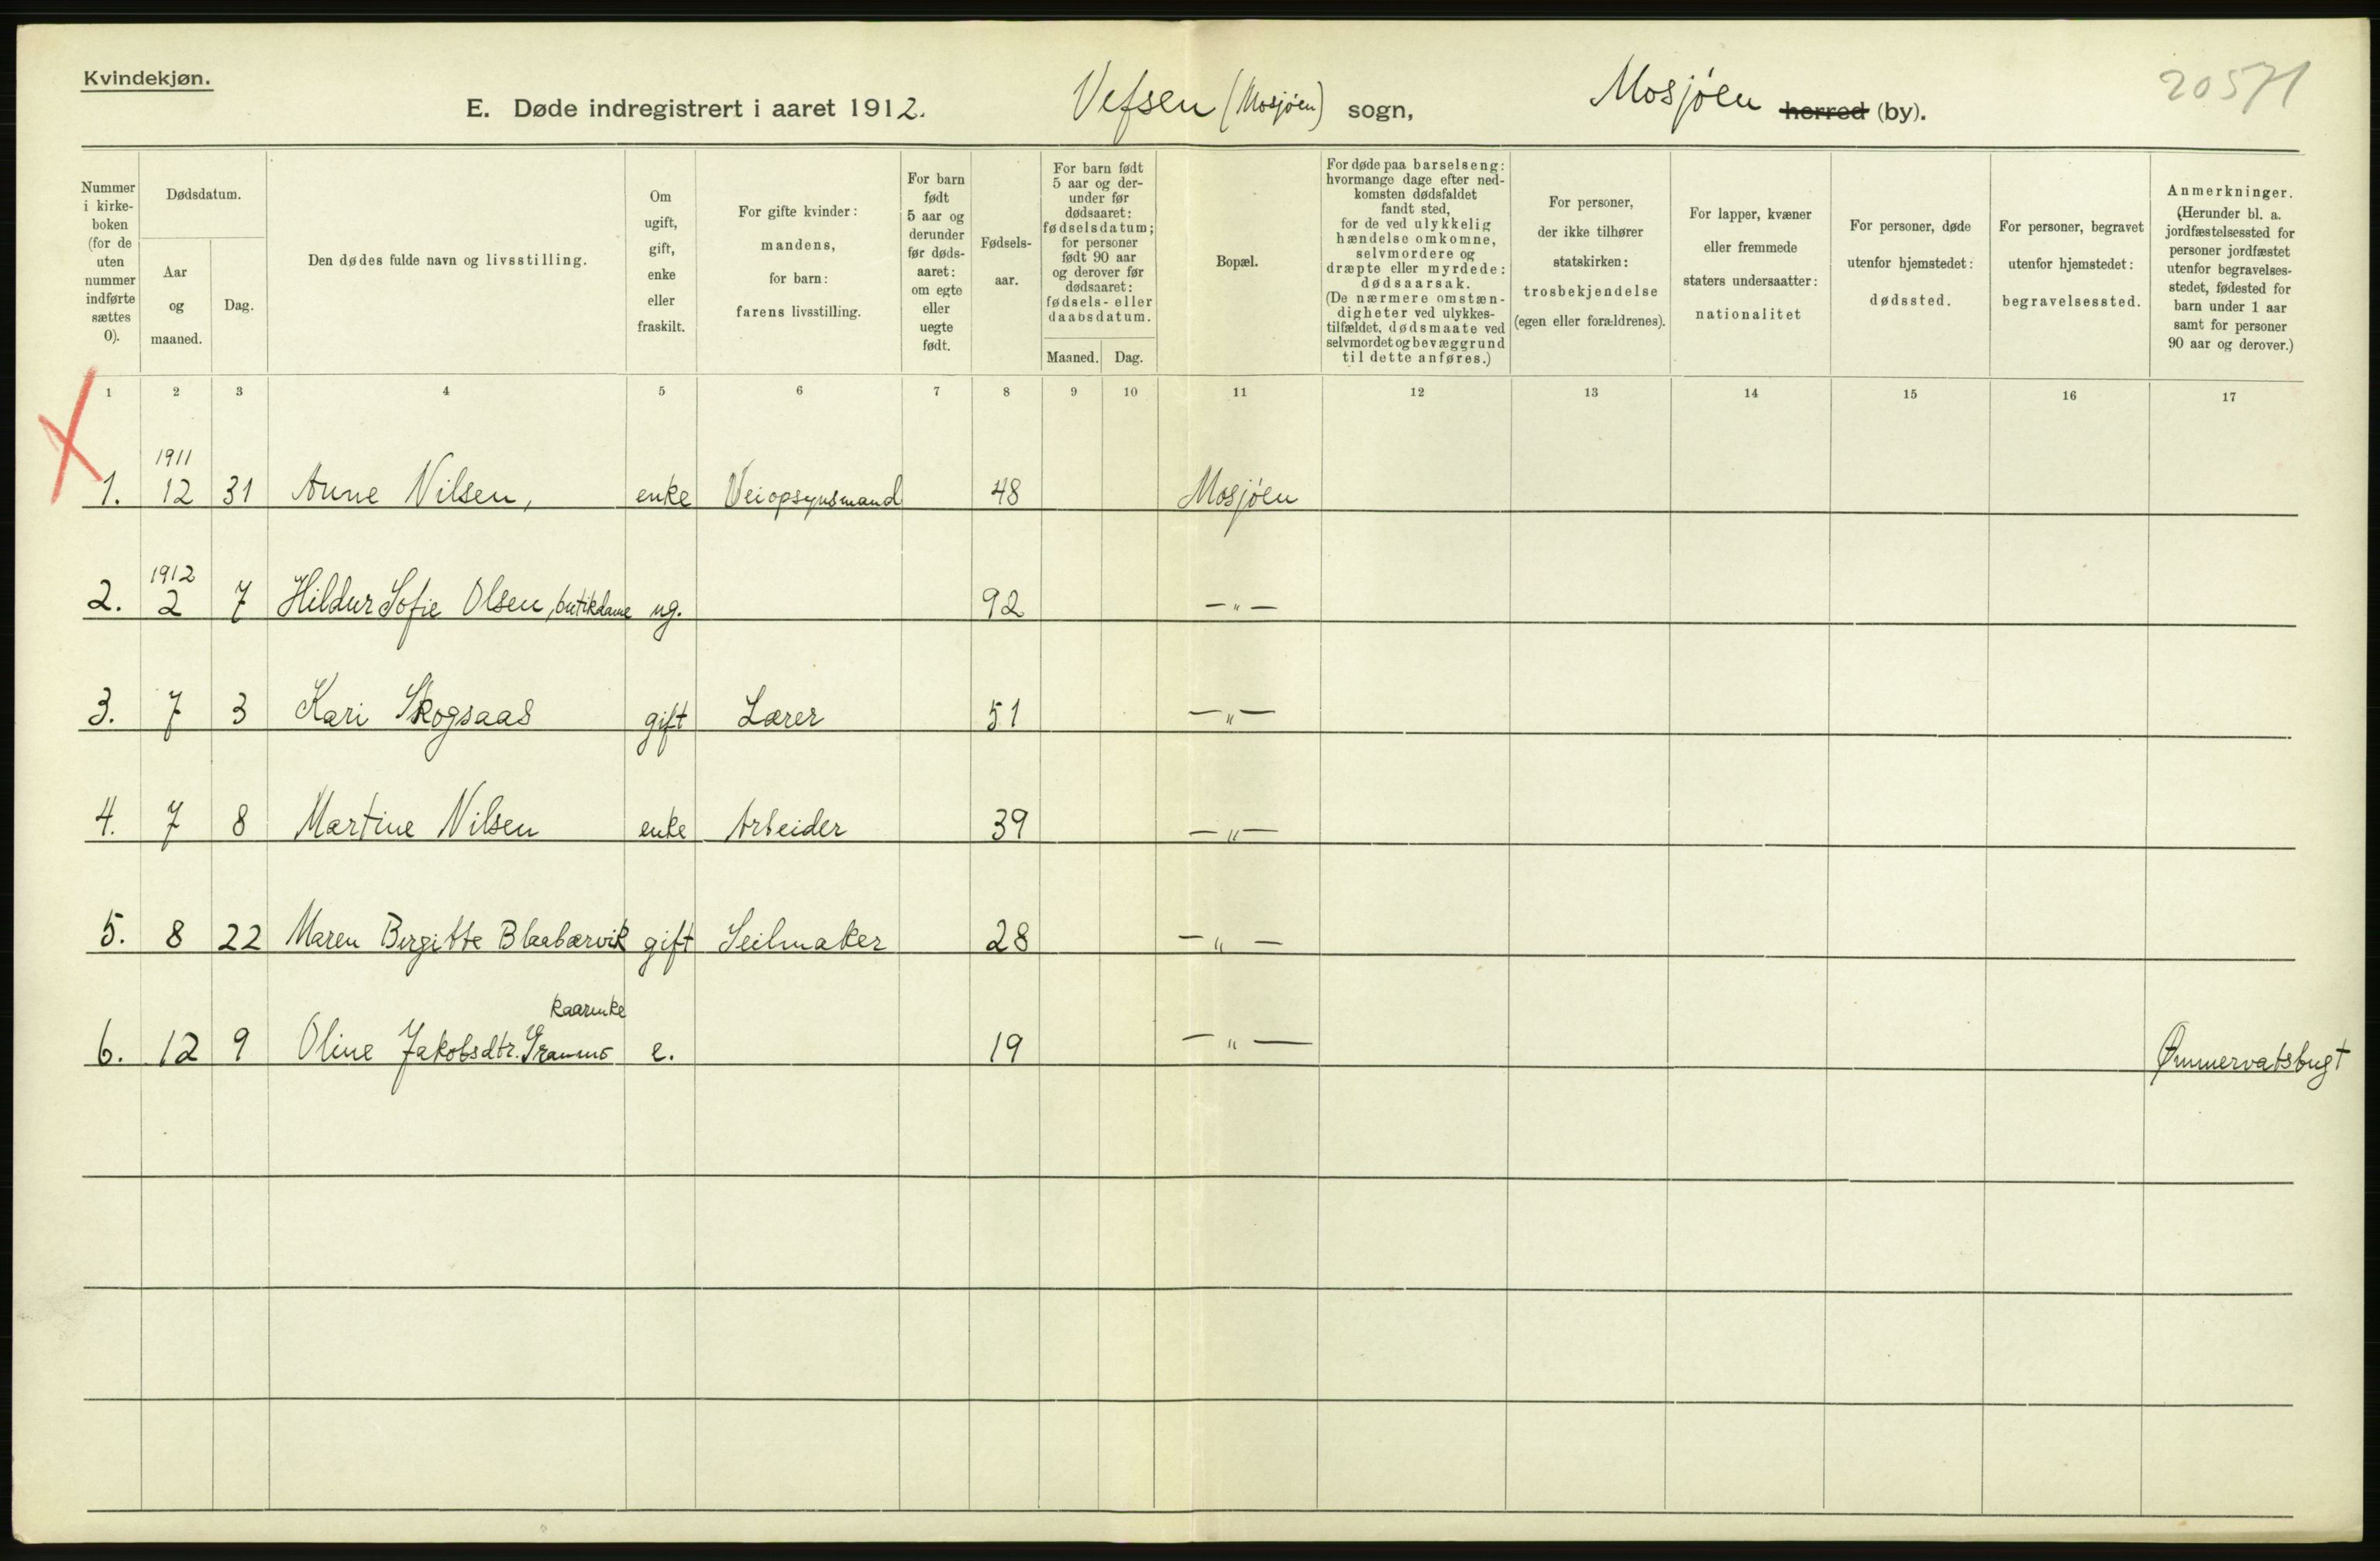 Kvindekjøn.
E. Døde indregistrert i aaret 1912. Vefsen (Mosjøen) sogn, Mosjøen herred (by).
20571
Nummer i kirke-boken (for de uten nummer indførte sættes 0).
Dødsdatum.
Aar og maaned.
Dag.
Den dødes fulde navn og livsstilling.
Om ugift, gift, enke eller fraskilt.
For gifte kvinder: mandens, for barn: farens livsstilling.
For barn født 5 aar og derunder før døds-aaret: om egte eller uegte født.
Fødsels-aar.
For barn født 5 aar og der-under før dødsaaret: fødselsdatum; for personer født 90 aar og derover før dødsaaret: fødsels- eller daabsdatum.
Maaned. Dag.
Bopæl.
For døde paa barselseng: hvormange dage efter ned-komsten dødsfaldet fandt sted, for de ved ulykkelig hændelse omkomne, selvmordere og dræpte eller myrdede: dødsaarsak. (De nærmere omstæn-digheter ved ulykkes-tilfældet, dødsmaate ved selvmordet og bevæggrund til dette anføres.)
For personer, der ikke tilhører statskirken: trosbekjendelse (egen eller forældrenes).
For lapper, kvæner eller fremmede staters undersaatter: nationalitet
For personer, døde utenfor hjemstedet: dødssted.
For personer, begravet utenfor hjemstedet: begravelsessted.
Anmerkninger. (Herunder bl. a. jordfæstelsessted for personer jordfæstet utenfor begravelses-stedet, fødested for barn under 1 aar samt for personer 90 aar og derover.)
1 2 3 4 5 6 7 8 9 10 11 12 13 14 15 16 17
1911
1. 12 31 Anne Nilsen, enke Veiopsynsmand 48 Mosjøen
1912
2. 2 7 Hildur Sofie Olsen, butikdame ug. 92 —„—
3. 7 3 Kari Skogsaas gift Lærer 51 —„—
4. 7 8 Martine Nilsen enke Arbeider 39 —„—
5. 8 22 Maren Birgitte Blaabærvik gift Seilmaker 28 —„—
kaarenke
6. 12 9 Oline Jakobsdtr. e. 19 —„— Ømmervatsbugt